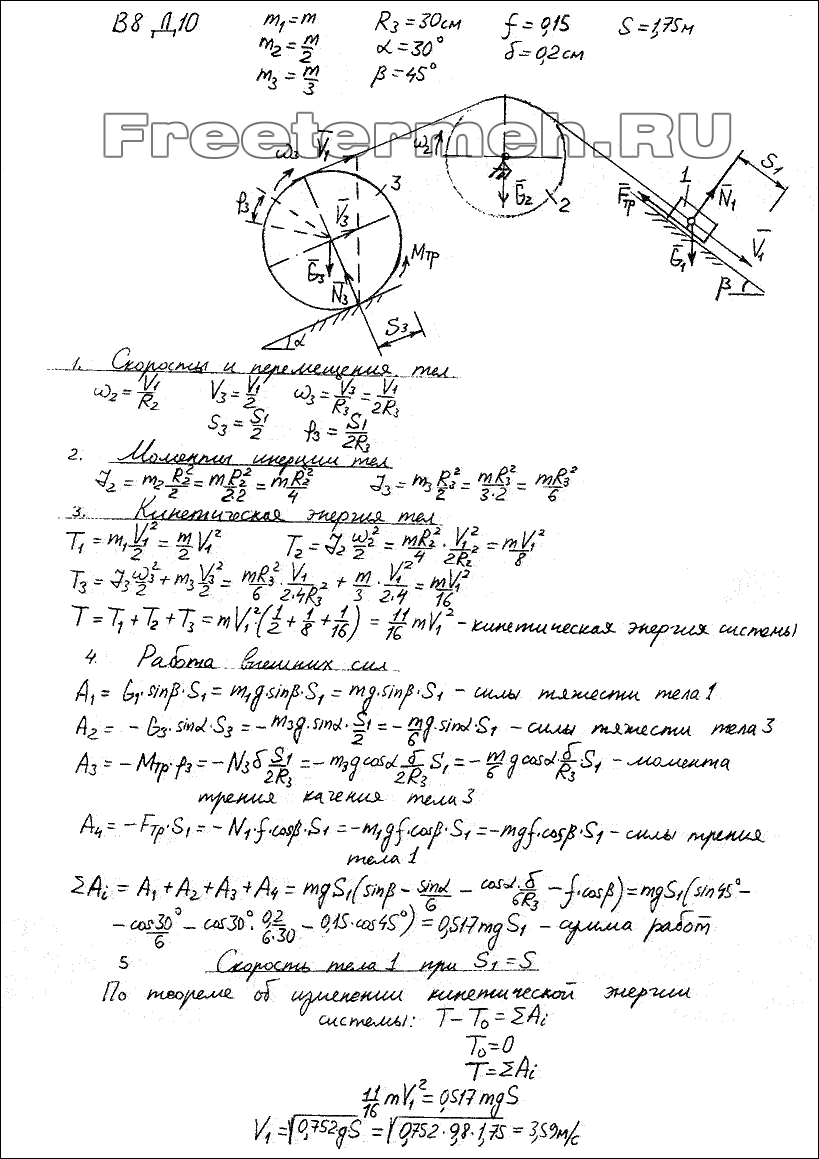 В8 Д10 m₁=m R₃=30см f=0,15 S=1,75м
m₂=m/2 α=30° δ=0,2см
m₃=m/3 β=45°
Freetermeh.RU
ω₃ V̄₁ 3 ω₂ Ḡ₂ 2 F̄тр 1 N̄₁ S₁
φ₃ V̄₃ Mтр Ḡ₃ N̄₃ Ḡ₁ V̄₁ β
α S₃
1. Скоросты и перемещения тел
ω₂=V₁/R₂ V₃=V₁/2 ω₃=V₃/R₃=V₁/2R₃
S₃=S₁/2 φ₃=S₁/2R₃
2. Моменты инерции тел
J₂=m₂R₂²/2=mR₂²/2·2=mR₂²/4 J₃=m₃R₃²/2=mR₃²/3·2=mR₃²/6
3. Кинетическая энергия тел
T₁=m₁V₁²/2=m/2 V₁² T₂=J₂ω₂²/2=mR₂²/4·V₁²/2R₂²=mV₁²/8
T₃=J₃ω₃²/2+m₃V₃²/2=mR₃²/6·V₁²/2·4R₃²+m/3·V₁²/2·4=mV₁²/16
T=T₁+T₂+T₃=mV₁²·(1/2+1/8+1/16)=11/16 mV₁² - кинетическая энергия системы
4. Работа внешних сил
A₁=G₁·sinβ·S₁=m₁g·sinβ·S₁=mg·sinβ·S₁ - силы тяжести тела 1
A₂=-G₃·sinα·S₃=-m₃g·sinα·S₁/2=-m/6 g sinα S₁ - силы тяжести тела 3
A₃=-Mтр·φ₃=-N₃δ S₁/2R₃=-m₃g cosα δ/2R₃ S₁=-m/6 g cosα·δ/R₃ S₁ - момента
трения качения тела 3
A₄=-Fтр·S₁=-N₁·f·cosβ·S₁=-m₁gf·cosβ·S₁=-mgf·cosβ·S₁ - силы трения
тела 1
ΣAᵢ=A₁+A₂+A₃+A₄=mgS₁(sinβ-sinα/6-cosα·δ/6R₃-f·cosβ)=mgS₁(sin45°-
-cos30°/6-cos30°·0,2/6·30-0,15·cos45°)=0,517mgS₁ - сумма работ
5 Скорость тела 1 при S₁=S
По теореме об изменении кинетической энергии
системы: T-T₀=ΣAᵢ
T₀=0
T=ΣAᵢ
11/16 mV₁²=0,517mgS
V₁=√0,752gS=√0,752·9,8·1,75=3,59м/с